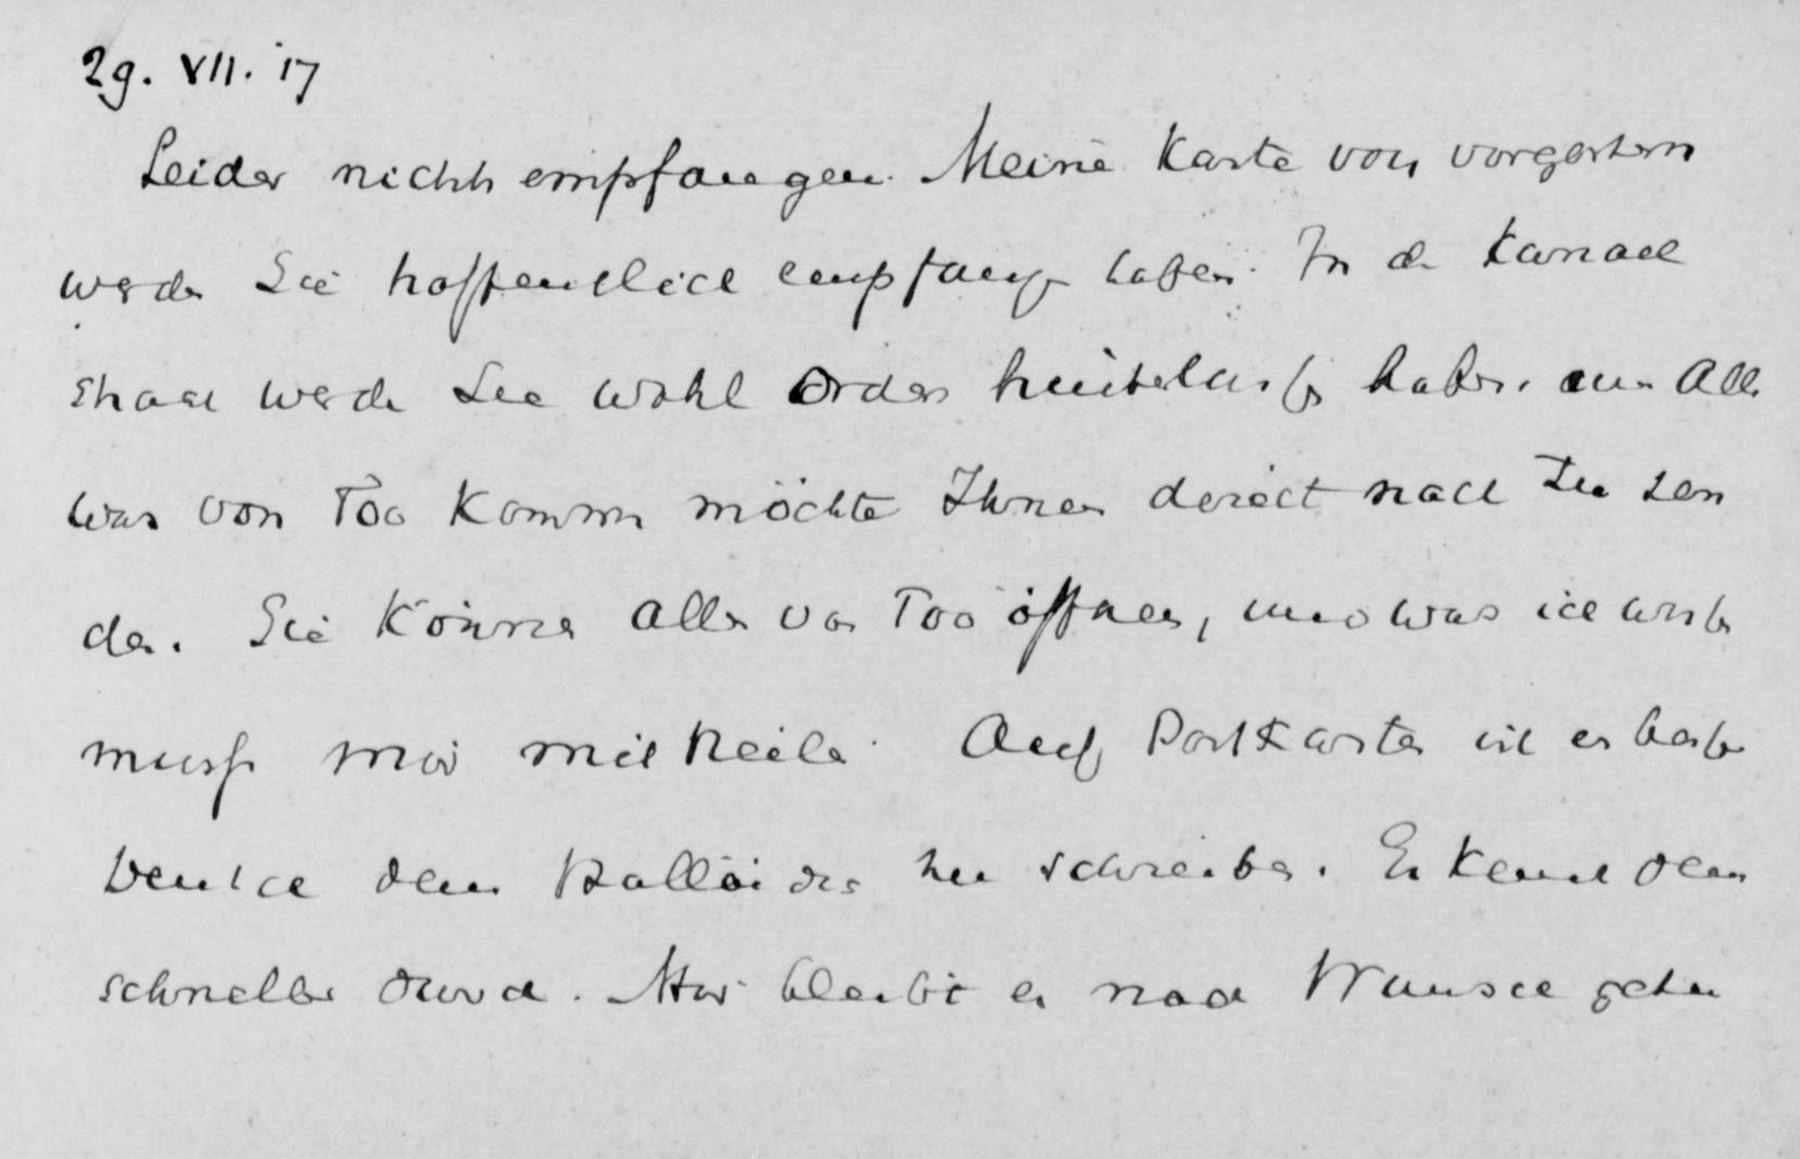 29. VII. 17
Leider nicht empfangen. Meine Karte von vorgestern
werden Sie hoffentlich empfangen haben. In der Kanaal
straat werden Sie wohl Order hinterlassen haben, um Alles
was von Too kommen möchte Ihnen direct nach zu sen
den. Sie können Alles von Too öffnen, und was ich wissen
muss mir mitteilen. Auf Postkarten ist es besser
dem zu schreiben. Er kennt den
schneller durch. Mir bleibt er nach gehen